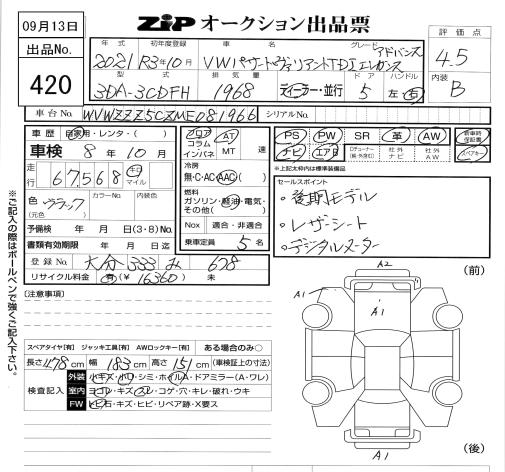 09月13日
ZIP オークション出品票
出品No.
420
年式 初年度登録 車名 グレード アドバンス 評価点
2021 R3年10月 VWパサートヴァリアントTDIエレガンス 4.5
型式 排気量 ドア ハンドル 内装
3DA-3CDFH 1968 ディーラー・並行 5 左・右 B
車台No. WVWZZZ3CZME081966 シリアルNo.
車歴 自家用・レンタ・( )
車検 8年10月
走行 67,568 キロ マイル
色 ブラック カラーNo. 内装色
(元色)
予備検 年 月 日(3・8)No.
書類有効期限 年 月 日迄
登録No. 大分 333 み 678
リサイクル料金 有(¥16360) 未
フロア コラム インパネ AT MT 速
冷房
無・C・AC・AAC( )
燃料
ガソリン・軽油・電気・その他( )
Nox 適合・非適合
乗車定員 5名
PS PW SR 革 AW 新車時保証書
ナビ エアB 社外ナビ 社外AW スペアキー
*上記太枠内は標準装備品
セールスポイント
・後期モデル
・レザーシート
・デジタルメーター
※ご記入の際はボールペンで強くご記入下さい。
[注意事項]
スペアタイヤ【有】 ジャッキ工具【有】 AWロックキー【有】 ある場合のみ○
長さ478cm 幅183cm 高さ151cm (車検証上の寸法)
検査記入
外装 小キズ・小凹・シミ・ホイルA・ドアミラー(A・ワレ)
室内 ヨゴレ・キズ・スレ・コゲ・穴・キレ・破れ・ウキ
FW 飛石・キズ・ヒビ・リペア跡・X要ス
(前)
A2
A1
A1
A1
(後)